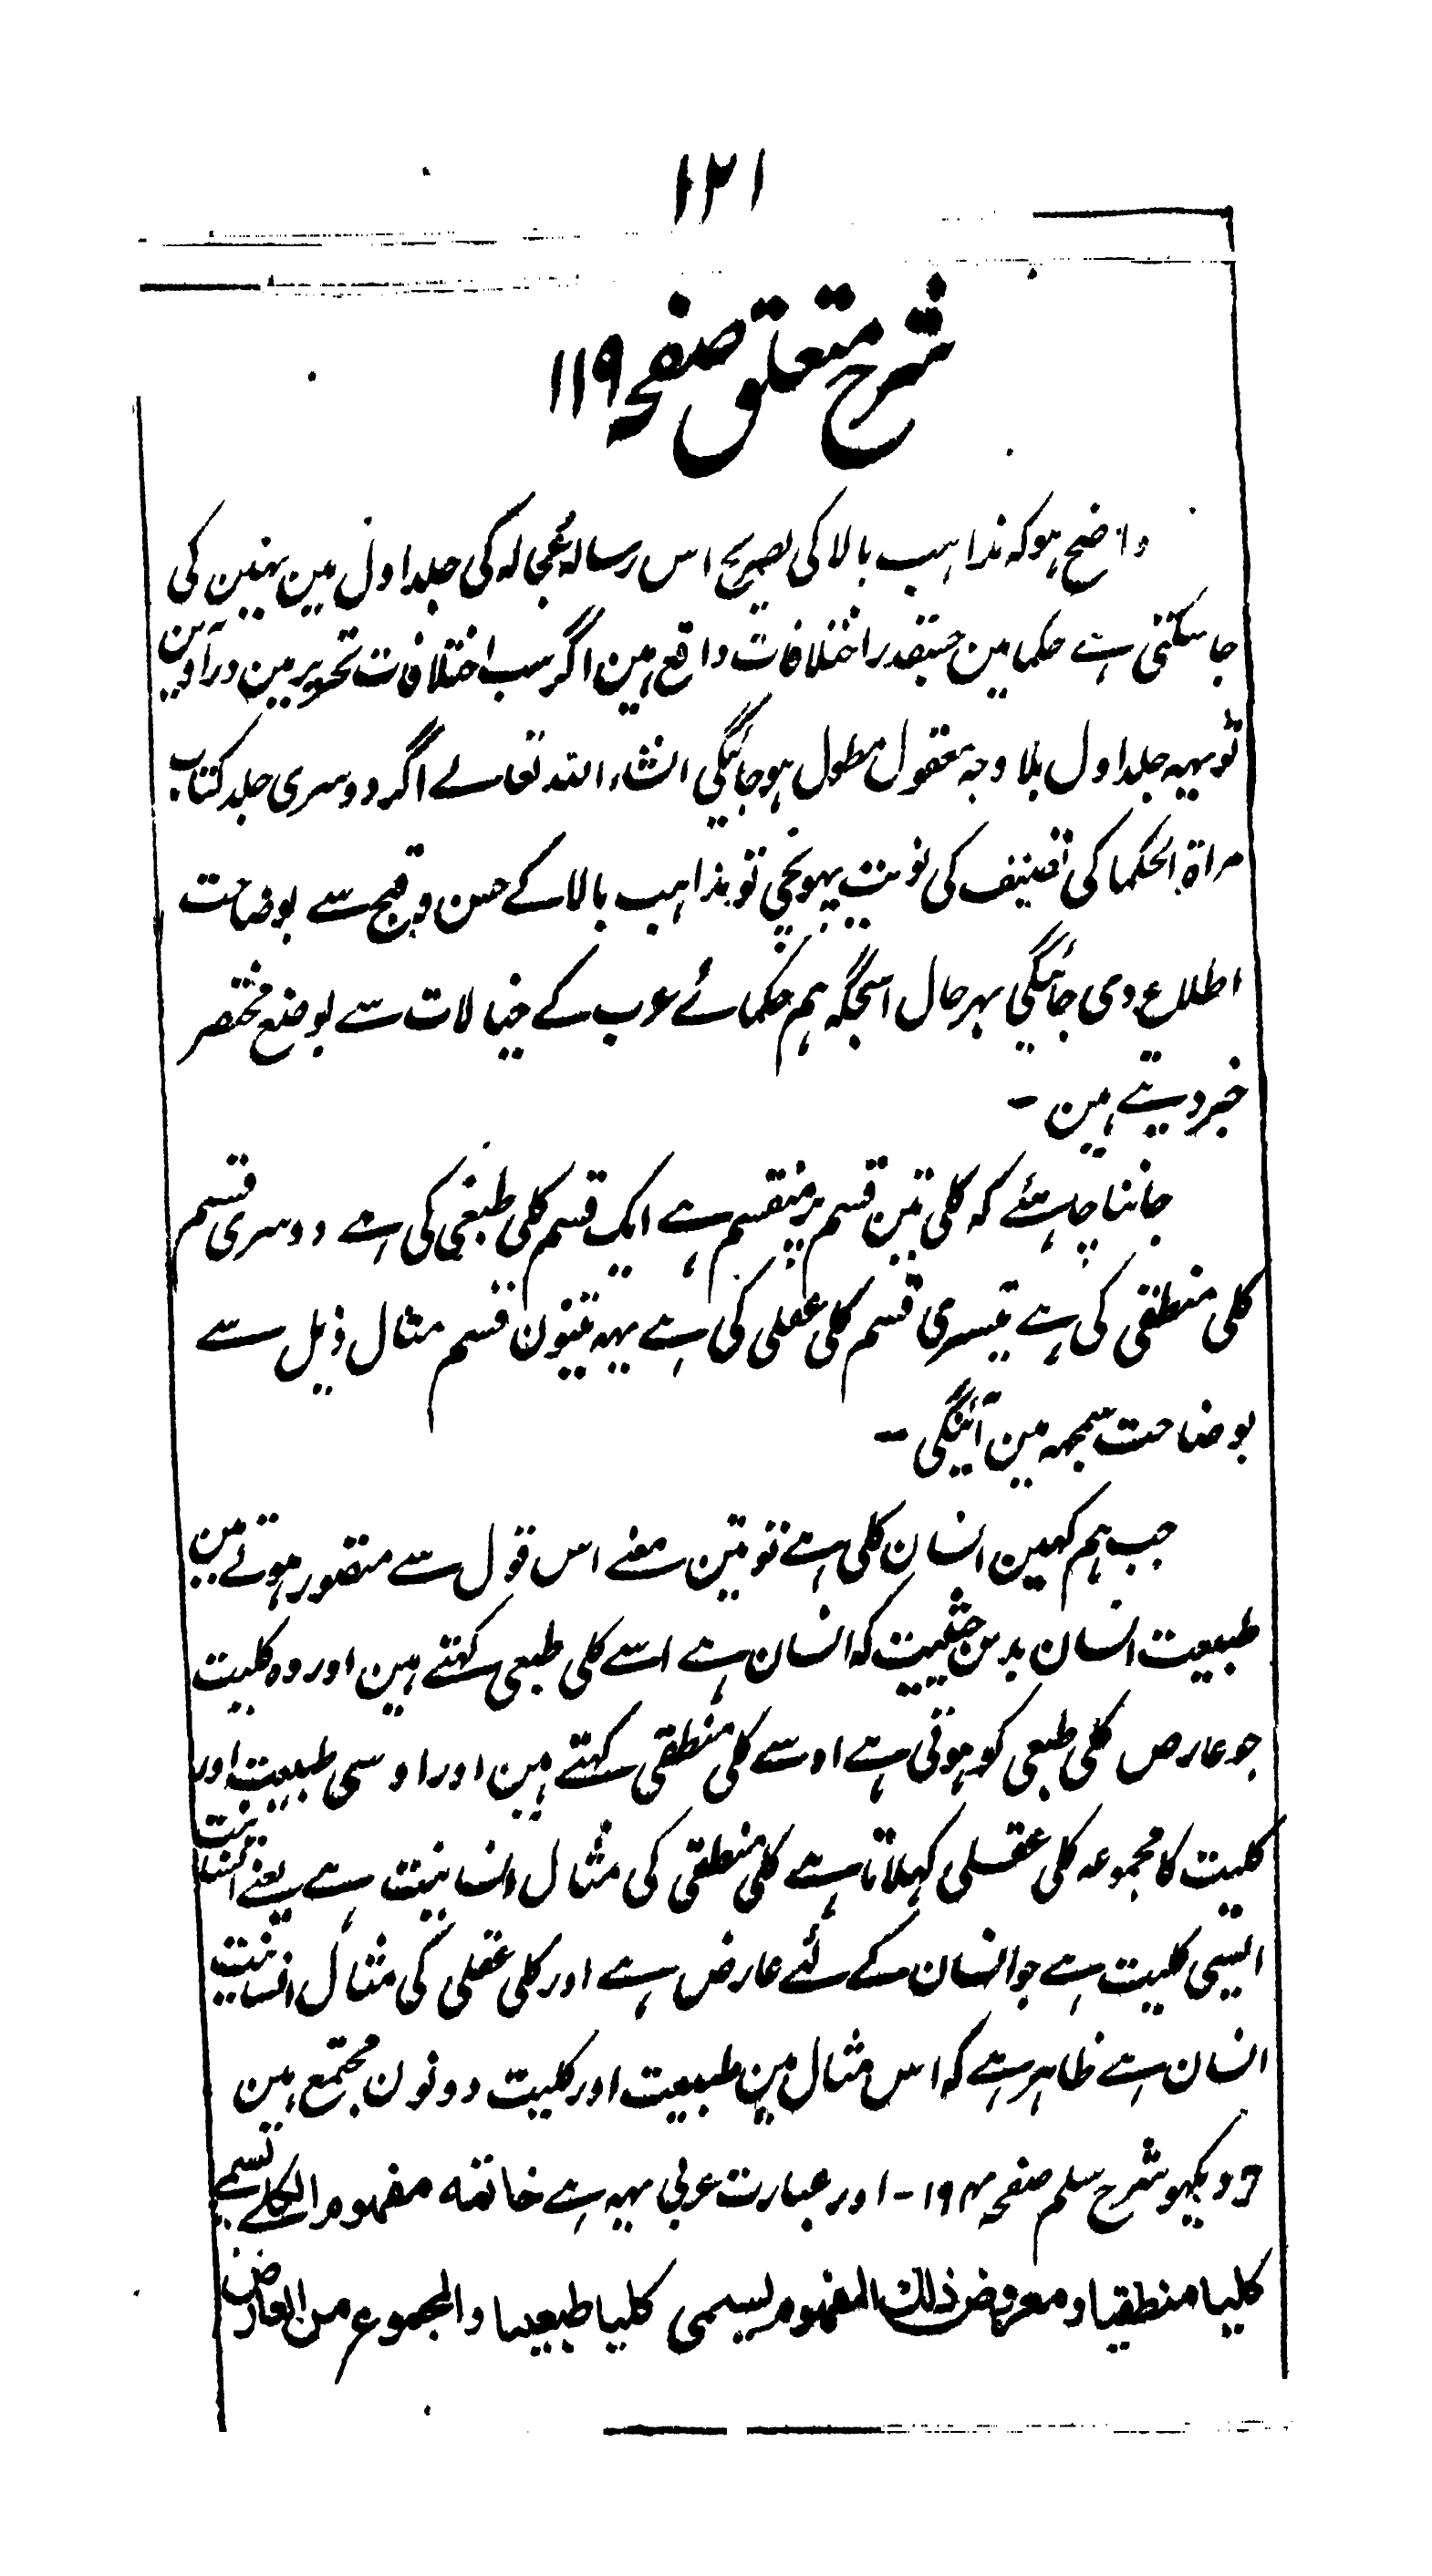 ۱۲۱
شرح متعلق صفحہ ۱۱۹
واضح ہو کہ مذاہب بالا کی تصریح اس رسالہ عُجالہ کی جلد اول مین نہین کی
جاسکتی ہے حکما مین جسقدر اختلافات واقع ہین اگر سب اختلافات تحریر مین درآوین
تو یہہ جلد اول بلا وجہ معقول مطول ہو جائیگی انشاء اللہ تعالے اگر دوسری جلد کتاب
مراة الحکما کی تصنیف کی نوبت پہونچی تو مذاہب بالا کے حسن و قبح سے بوضاحت
اطلاع دی جائیگی بہر حال اسجگہ ہم حکمائے عرب کے خیالات سے بوضع مختصر
خبر دیتے ہین ۔
جاننا چاہئے کہ کلی تین قسم پر منقسم ہے ایک قسم کلی طبعی کی ہے دوسری قسم
کلی منطقی کی ہے تیسری قسم کلی عقلی کی ہے یہہ تینون قسم مثال ذیل سے
بوضاحت سمجہہ مین آئینگی ۔
جب ہم کہین انسان کلی ہے تو تین معنے اس قول سے متصور ہوتے ہین
طبیعت انسان بدین حیثیت کہ انسان ہے اسے کلی طبعی کہتے ہین اور وہ کلیت
جو عارض کلی طبعی کو ہوتی ہے اوسے کلی منطقی کہتے ہین اور اوسی طبیعت اور
کلیت کا مجموعہ کلی عقلی کہلاتا ہے کلی منطقی کی مثال انسانیت ہے یعنے انسانیت
ایسی کلیت ہے جو انسان کے لئے عارض ہے اور کلی عقلی کی مثال انسانیت
انسان ہے ظاہر ہے کہ اس مثال مین طبیعت اور کلیت دونون مجتمع ہین
دیکہو شرح سلم صفحہ ۱۹۴ ۔ اور عبارت عربی یہہ ہے خاتمه مفهوم الكلے يسمے
كليا منطقيا و معروض ذلك المفهوم يسمى كليا طبعيا والمجموع من العارض